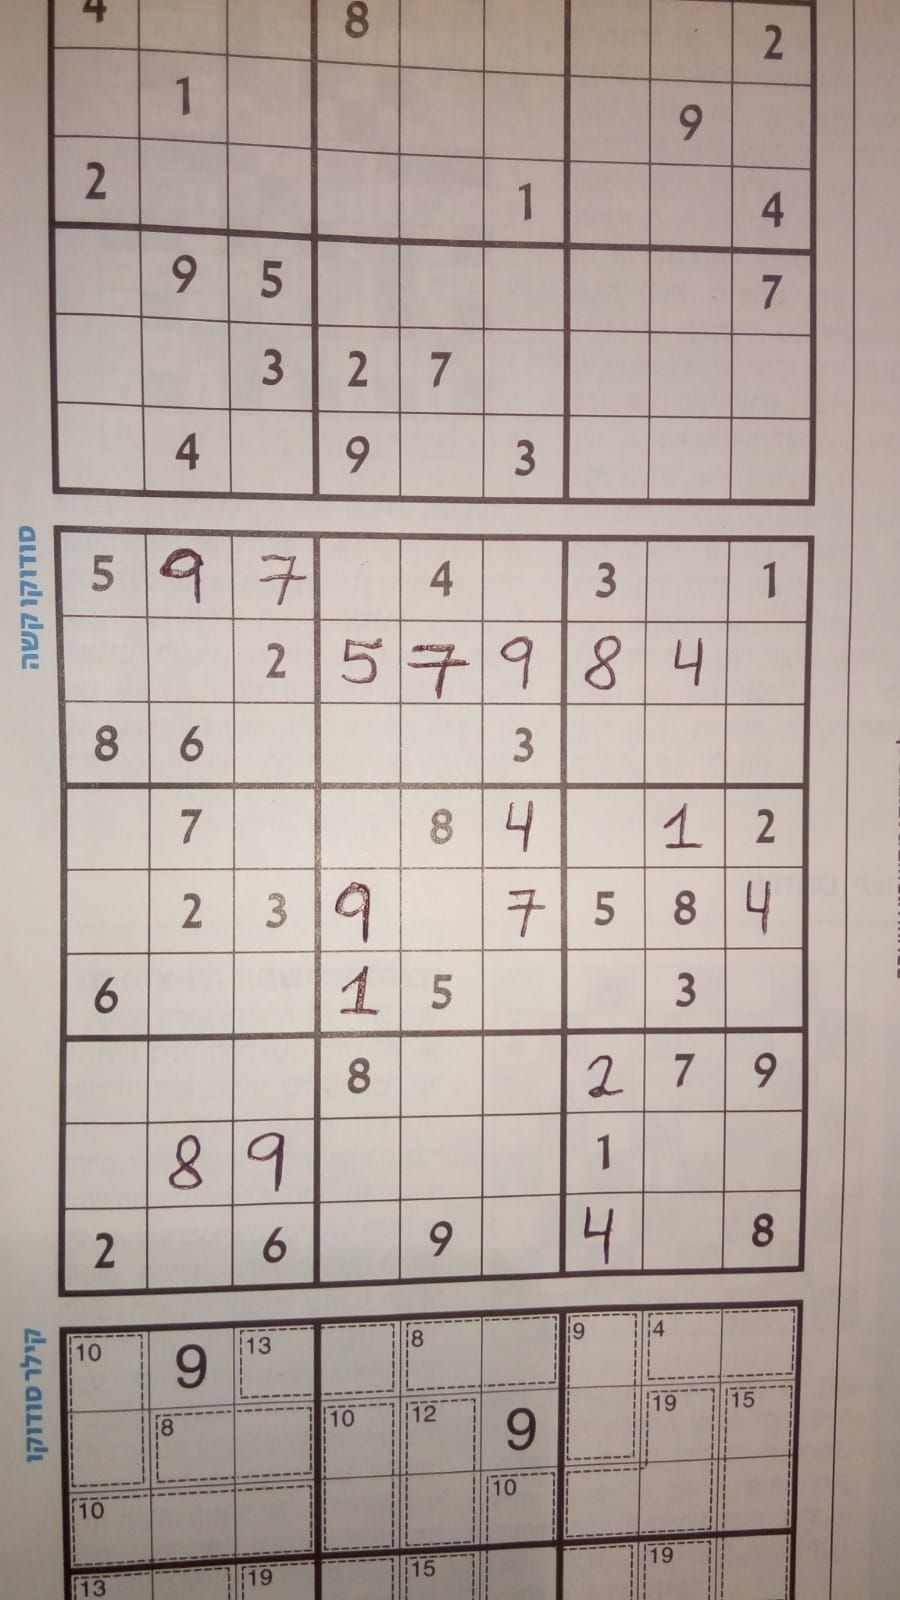 4 8 2
1 9
2 1 4
9 5 7
3 2 7
4 9 3
סודוקו קשה
5 9 7 4 3 1
2 5 7 9 8 4
8 6 3
7 8 4 1 2
2 3 9 7 5 8 4
6 1 5 3
8 2 7 9
8 9 1
2 6 9 4 8
קילר סודוקו
10 9 13 8 9 4
8 10 12 9 19 15
10 10
13 19 15 19